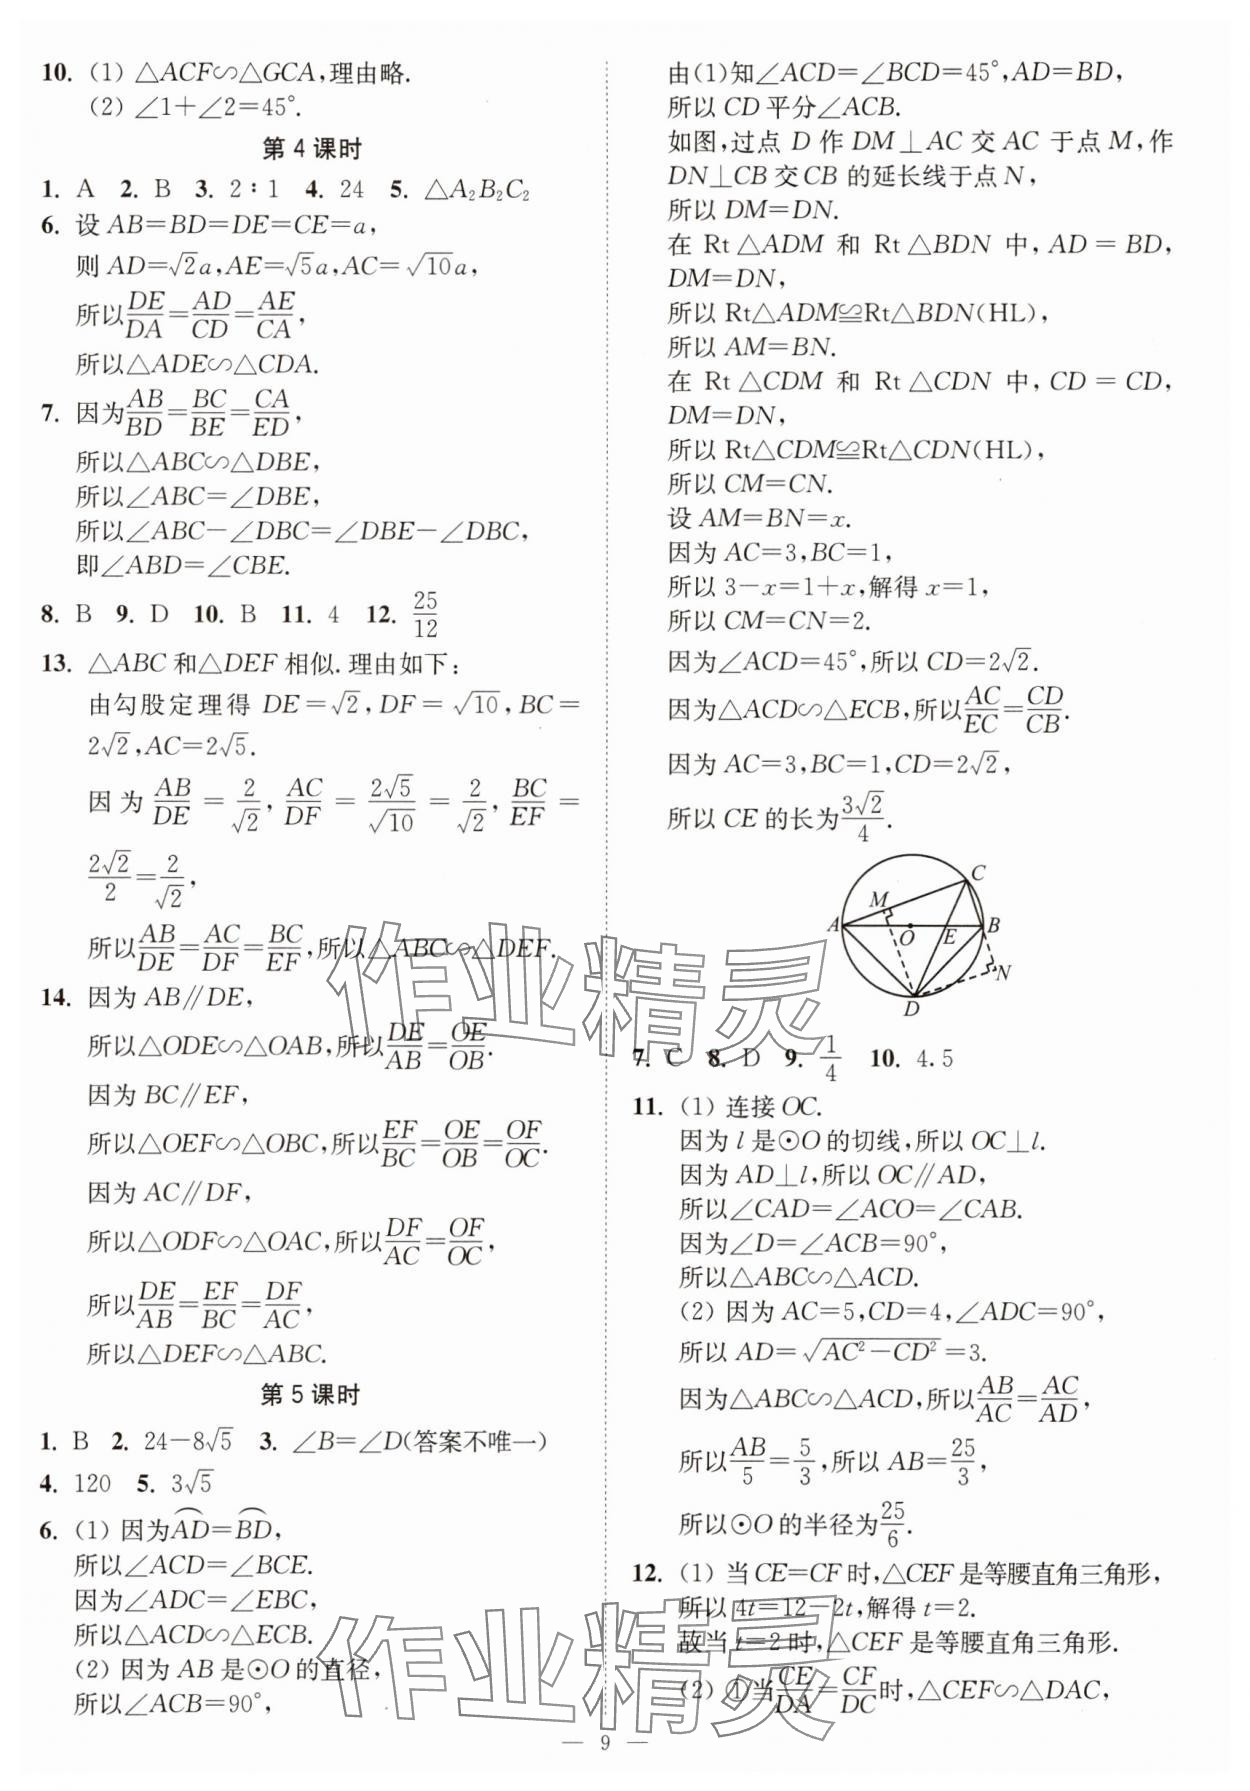 10. (1) △ACF∽△GCA,理由略.
(2) ∠1+∠2=45°.
第4课时
1. A 2. B 3. 2∶1 4. 24 5. △A₂B₂C₂
6. 设 AB=BD=DE=CE=a,
则 AD=√2a,AE=√5a,AC=√10a,
所以DE/DA=AD/CD=AE/CA,
所以△ADE∽△CDA.
7. 因为AB/BD=BC/BE=CA/ED,
所以△ABC∽△DBE,
所以∠ABC=∠DBE,
所以∠ABC-∠DBC=∠DBE-∠DBC,
即∠ABD=∠CBE.
8. B 9. D 10. B 11. 4 12. 25/12
13. △ABC和△DEF相似.理由如下:
由勾股定理得 DE=√2,DF=√10,BC=
2√2,AC=2√5.
因为 AB/DE=2/√2,AC/DF=2√5/√10=2/√2,BC/EF=
2√2/2=2/√2,
所以AB/DE=AC/DF=BC/EF,所以△ABC∽△DEF.
14. 因为 AB∥DE,
所以△ODE∽△OAB,所以DE/AB=OE/OB.
因为 BC∥EF,
所以△OEF∽△OBC,所以EF/BC=OE/OB=OF/OC.
因为 AC∥DF,
所以△ODF∽△OAC,所以DF/AC=OF/OC,
所以DE/AB=EF/BC=DF/AC,
所以△DEF∽△ABC.
第5课时
1. B 2. 24-8√5 3. ∠B=∠D(答案不唯一)
4. 120 5. 3√5
6. (1) 因为⌒AD=⌒BD,
所以∠ACD=∠BCE.
因为∠ADC=∠EBC,
所以△ACD∽△ECB.
(2) 因为 AB 是⊙O 的直径,
所以∠ACB=90°,
由(1)知∠ACD=∠BCD=45°,AD=BD,
所以 CD 平分∠ACB.
如图,过点 D 作 DM⊥AC 交 AC 于点 M,作
DN⊥CB 交 CB 的延长线于点 N,
所以 DM=DN.
在 Rt△ADM 和 Rt△BDN 中,AD=BD,
DM=DN,
所以 Rt△ADM≌Rt△BDN(HL),
所以 AM=BN.
在 Rt△CDM 和 Rt△CDN 中,CD=CD,
DM=DN,
所以 Rt△CDM≌Rt△CDN(HL),
所以 CM=CN.
设 AM=BN=x.
因为 AC=3,BC=1,
所以 3-x=1+x,解得 x=1,
所以 CM=CN=2.
因为∠ACD=45°,所以 CD=2√2.
因为△ACD∽△ECB,所以AC/EC=CD/CB.
因为 AC=3,BC=1,CD=2√2,
所以 CE 的长为3√2/4.
C
M
A
O
E
B
N
D
7. C 8. D 9. 1/4 10. 4.5
11. (1) 连接 OC.
因为 l 是⊙O 的切线,所以 OC⊥l.
因为 AD⊥l,所以 OC∥AD,
所以∠CAD=∠ACO=∠CAB.
因为∠D=∠ACB=90°,
所以△ABC∽△ACD.
(2) 因为 AC=5,CD=4,∠ADC=90°,
所以 AD=√(AC²-CD²)=3.
因为△ABC∽△ACD,所以AB/AC=AC/AD,
所以AB/5=5/3,所以 AB=25/3,
所以⊙O 的半径为25/6.
12. (1) 当CE=CF时,△CEF是等腰直角三角形,
所以 4t=12-2t,解得 t=2.
故当 t=2时,△CEF是等腰直角三角形.
(2) ①当CE/DA=CF/DC时,△CEF∽△DAC,
— 9 —
作业精灵
作业精灵